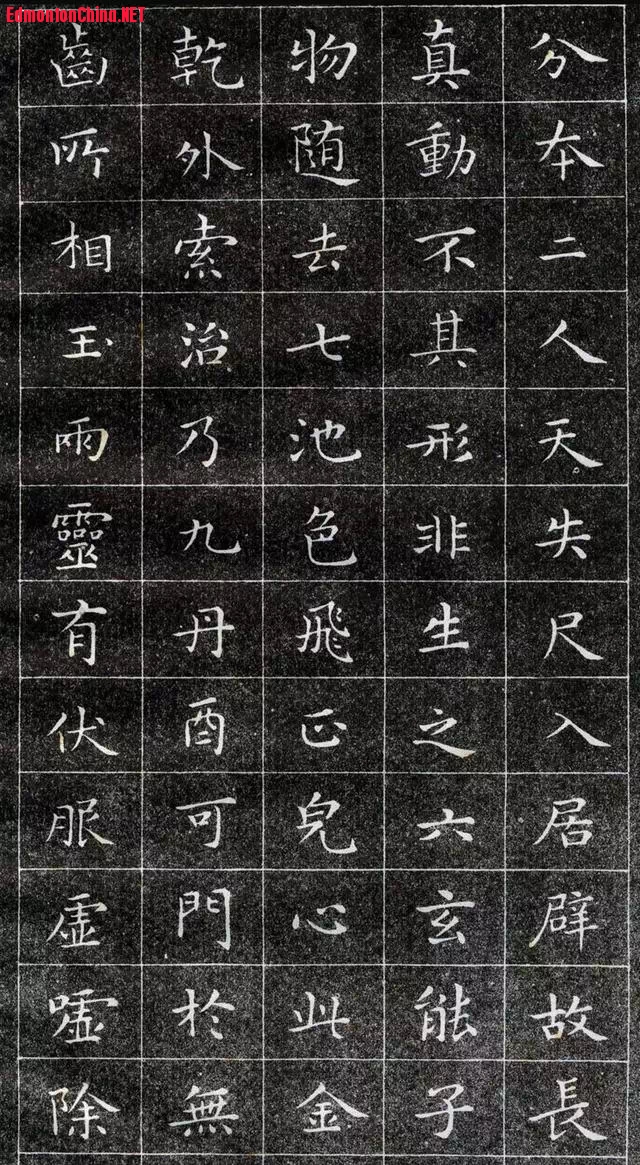 EdmontonChina.NET
分本二人天失尺入居辟故長
真動不其形非生之六玄能子
物随去七池色飛正皃心此金
乾外索治乃九丹酉可門於無
齒所相玉雨靈有伏服虚嘘除